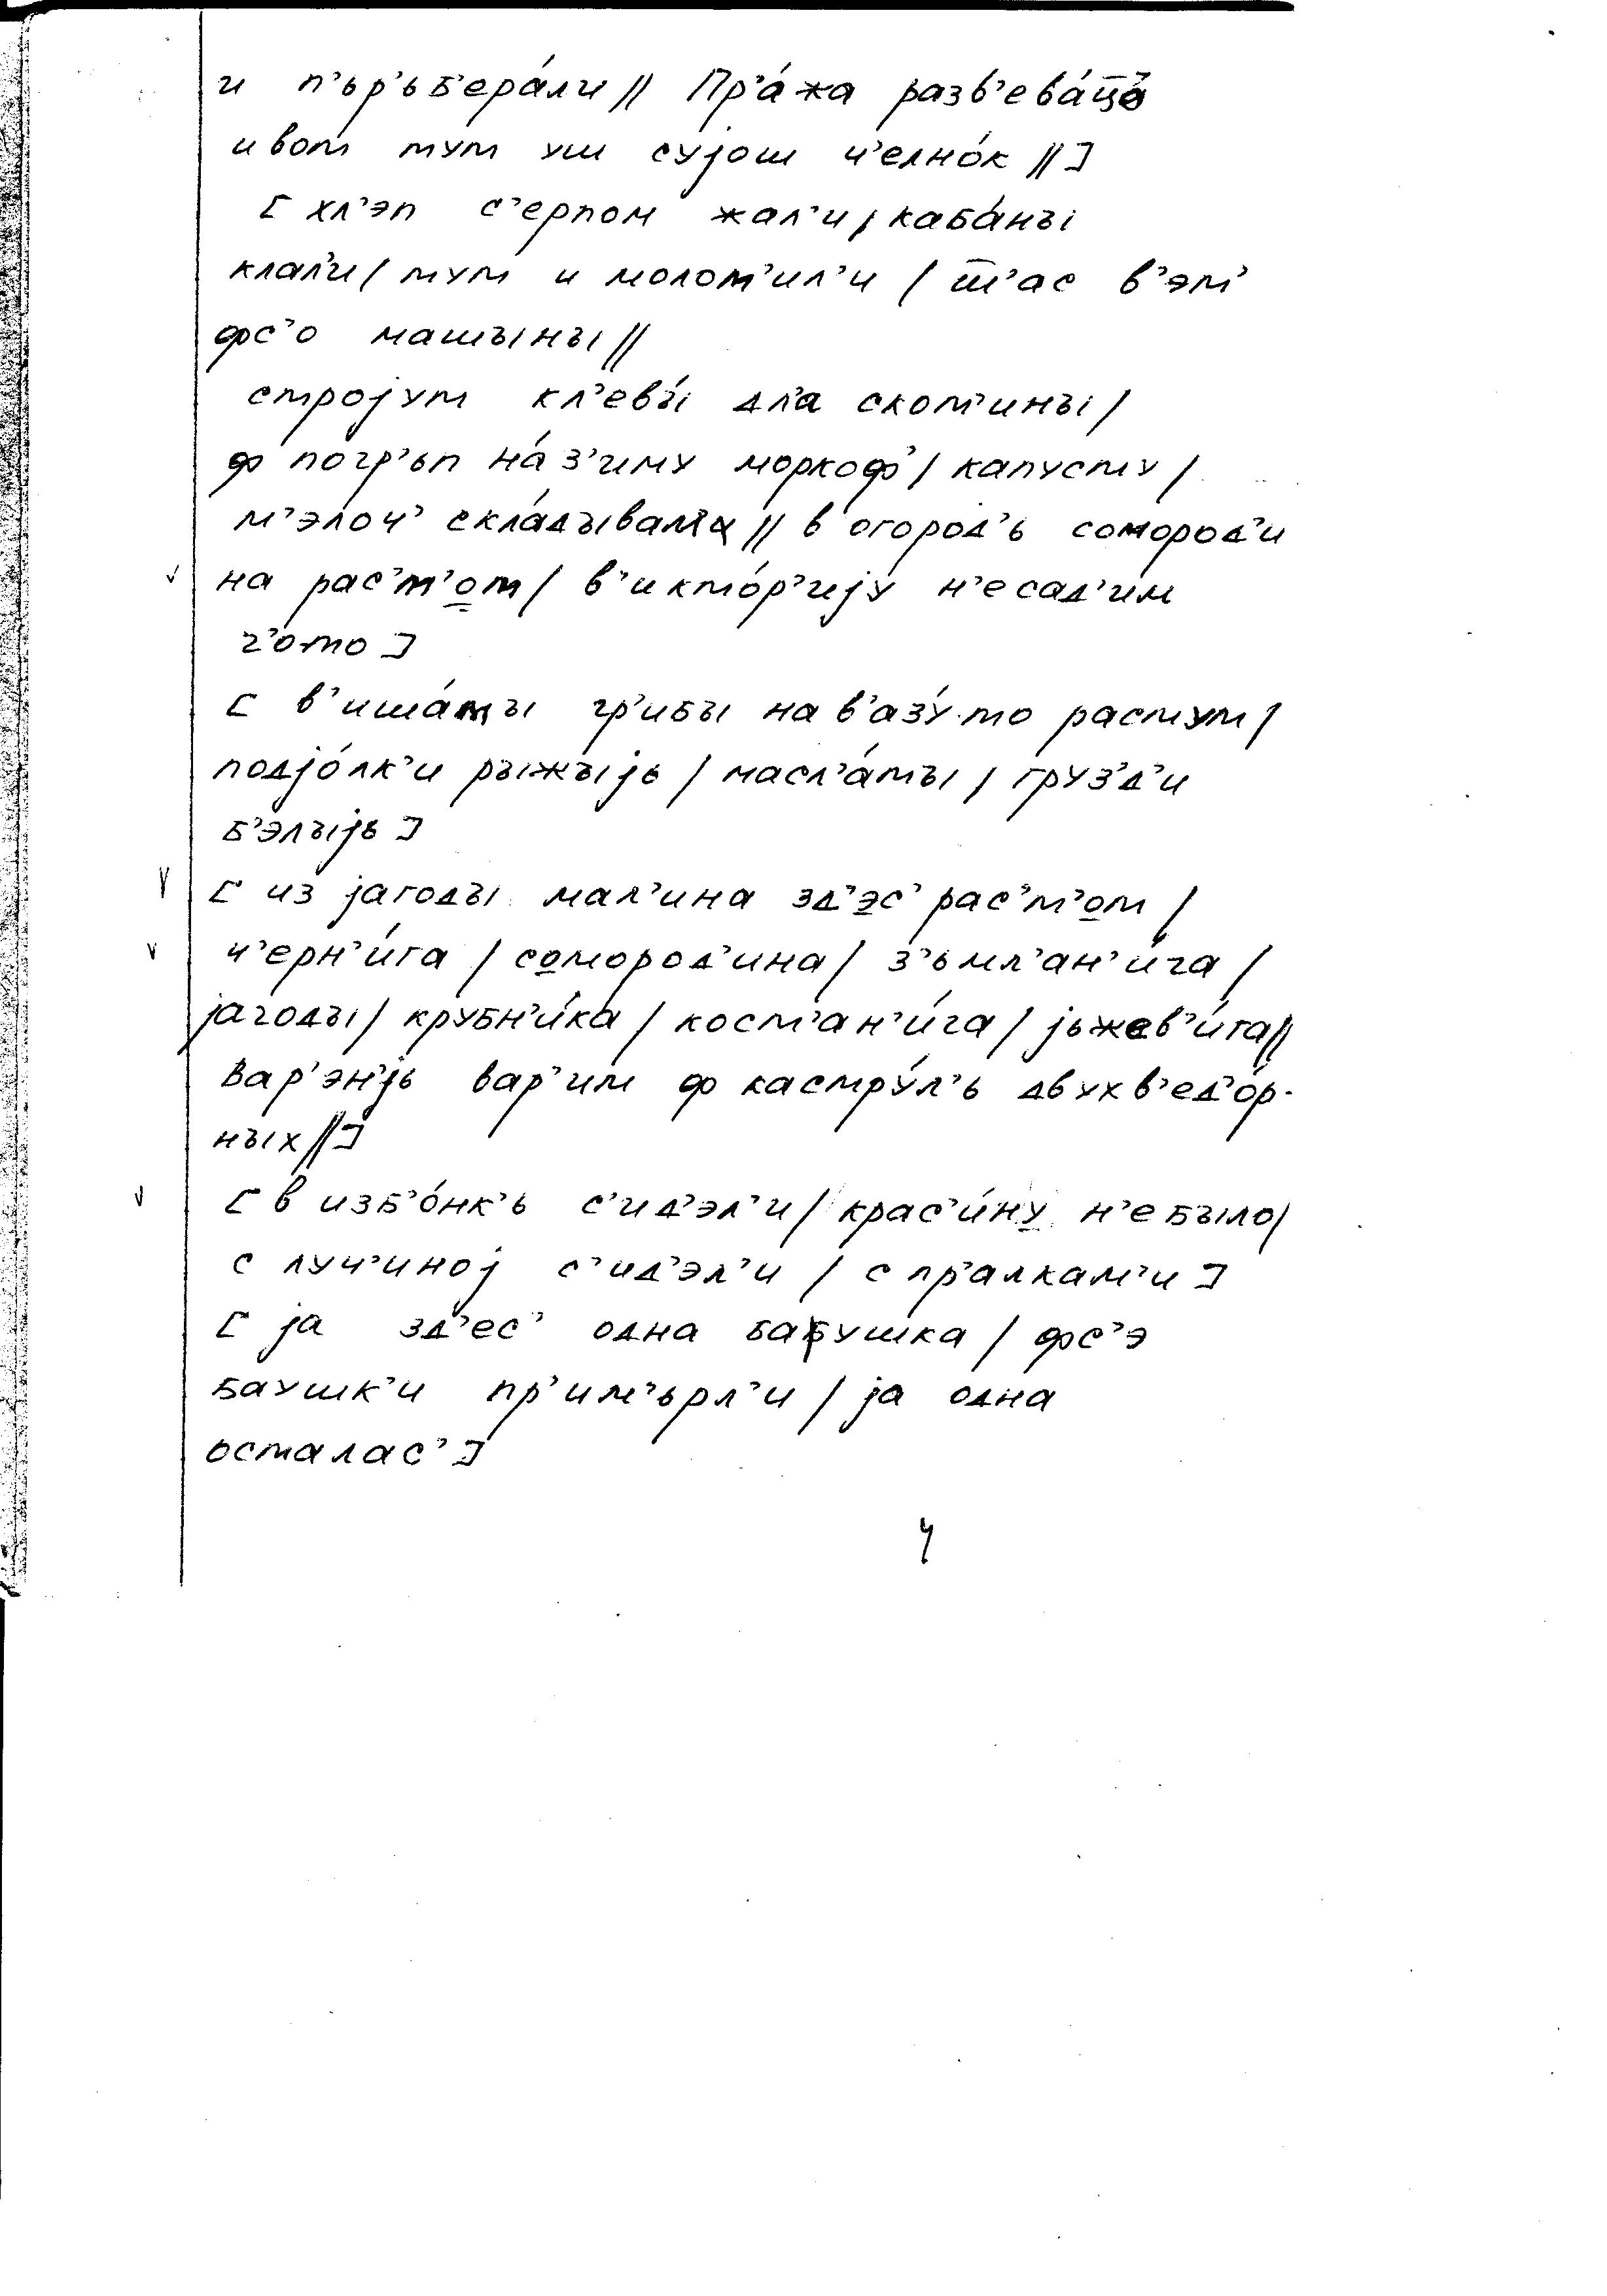 и п’ьр’ьб’ера́ли // Пр’а́жа разв’ева́ц̄а
и вот тут уш сујош ч’елно́к //]
[ хл’эп с’ерпом жал’и / каба́ны
клал’и / тут и молот’ил’и / ш̄’ас в’эт’
фс’о машыны //
стројут кл’евы́ дл’а скот’ины /
ф погр’ьп на́ з’иму моркоф’ / капусту /
м’элоч’ скла́дывал’и // в огород’ь сомород’и
на рас’т’от / в’икто́р’ију н’е сад’им
г’ото ]
[ в’иша́ты гр’ибы на в’азу́ то растут /
подјо́лк’и рыжыјь / масл’а́ты / груз’д’и
б’элыјь ]
[ из јагоды мал’ина зд’эс’ рас’т’от /
ч’ерн’и́га / сомород’ина / з’ьмл’ан’и́га /
јагоды / крубн’и́ка / кост’ан’и́га / јьжев’и́га //
Вар’эн’јь вар’им ф кастру́л’ь двухв’ед’о́р-
ных //]
[ в изб’о́нк’ь с’ид’эл’и / крас’и́ну н’е было /
с луч’иној с’ид’эл’и / с пр’алкам’и ]
[ ја зд’ес’ одна бабушка / фс’э
баушк’и пр’им’ьрл’и / ја одна
осталас’ ]
4